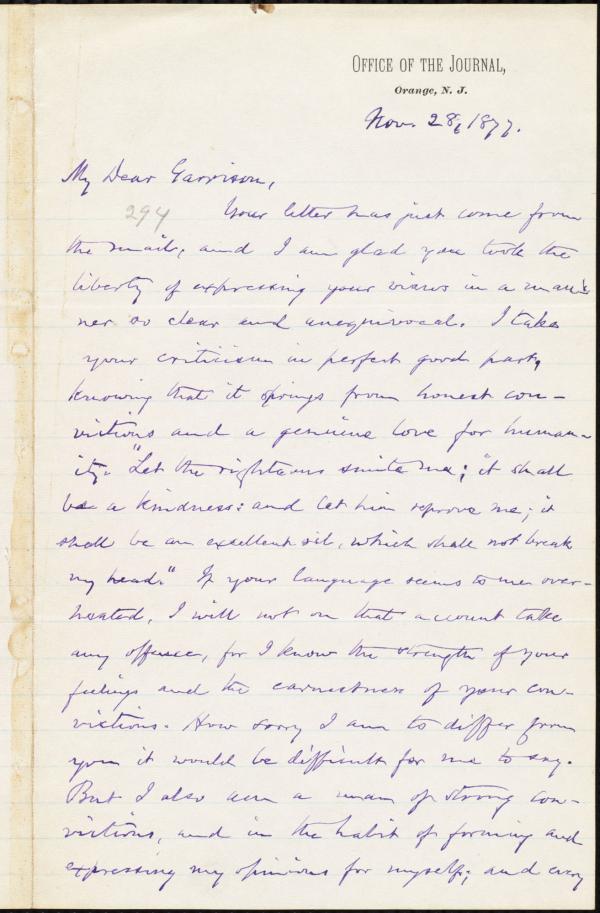 OFFICE OF THE JOURNAL,
Orange, N. J.
Nov. 28, 1877.
My Dear Garrison,
294 Your letter has just come from
the mail, and I am glad you took the
liberty of expressing your views in a man-
ner so clear and unequivocal. I take
your criticism in perfect good part,
knowing that it springs from honest con-
victions and a genuine love for human-
ity. "Let the righteous smite me; it shall
be a kindness: and let him reprove me; it
shall be an excellent oil, which shall not break
my head." If your language seems to me over-
heated, I will not on that account take
any offence, for I know the strength of your
feelings and the earnestness of your con-
victions. How sorry I am to differ from
you it would be difficult for me to say.
But I also am a man of strong con-
victions, and in the habit of forming and
expressing my opinions for myself; and every